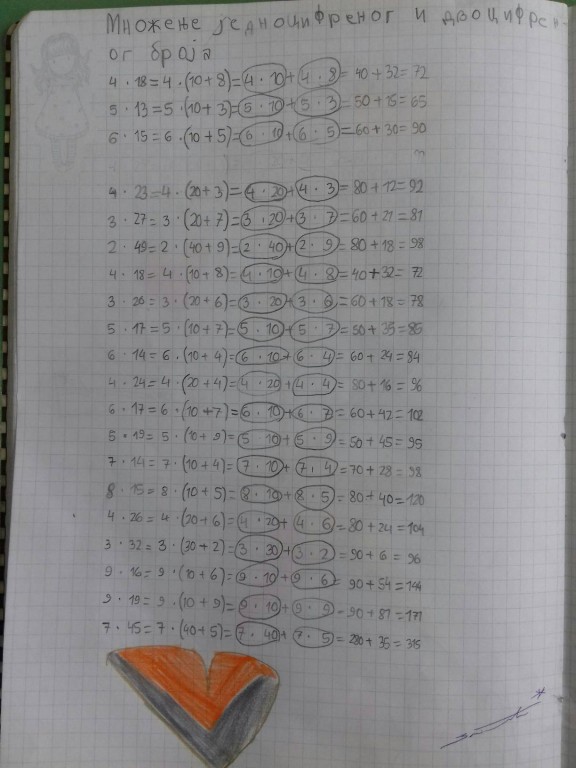 Множење једноцифреног и двоцифрен-
ог броја
4 · 18 = 4 · (10 + 8) = 4 · 10 + 4 · 8 = 40 + 32 = 72
5 · 13 = 5 · (10 + 3) = 5 · 10 + 5 · 3 = 50 + 15 = 65
6 · 15 = 6 · (10 + 5) = 6 · 10 + 6 · 5 = 60 + 30 = 90
4 · 23 = 4 · (20 + 3) = 4 · 20 + 4 · 3 = 80 + 12 = 92
3 · 27 = 3 · (20 + 7) = 3 · 20 + 3 · 7 = 60 + 21 = 81
2 · 49 = 2 · (40 + 9) = 2 · 40 + 2 · 9 = 80 + 18 = 98
4 · 18 = 4 · (10 + 8) = 4 · 10 + 4 · 8 = 40 + 32 = 72
3 · 26 = 3 · (20 + 6) = 3 · 20 + 3 · 6 = 60 + 18 = 78
5 · 17 = 5 · (10 + 7) = 5 · 10 + 5 · 7 = 50 + 35 = 85
6 · 14 = 6 · (10 + 4) = 6 · 10 + 6 · 4 = 60 + 24 = 84
4 · 24 = 4 · (20 + 4) = 4 · 20 + 4 · 4 = 80 + 16 = 96
6 · 17 = 6 · (10 + 7) = 6 · 10 + 6 · 7 = 60 + 42 = 102
5 · 19 = 5 · (10 + 9) = 5 10 + 5 · 9 = 50 + 45 = 95
7 · 14 = 7 · (10 + 4) = 7 · 10 + 7 · 4 = 70 + 28 = 98
8 · 15 = 8 · (10 + 5) = 8 · 10 + 8 · 5 = 80 + 40 = 120
4 · 26 = 4 · (20 + 6) = 4 · 20 + 4 · 6 = 80 + 24 = 104
3 · 32 = 3 · (30 + 2) = 3 · 30 + 3 · 2 = 90 + 6 = 96
9 · 16 = 9 · (10 + 6) = 9 · 10 + 9 · 6 = 90 + 54 = 144
9 · 19 = 9 · (10 + 9) = 9 · 10 + 9 · 9 = 90 + 81 = 171
7 · 45 = 7 · (40 + 5) = 7 · 40 + 7 · 5 = 280 + 35 = 315